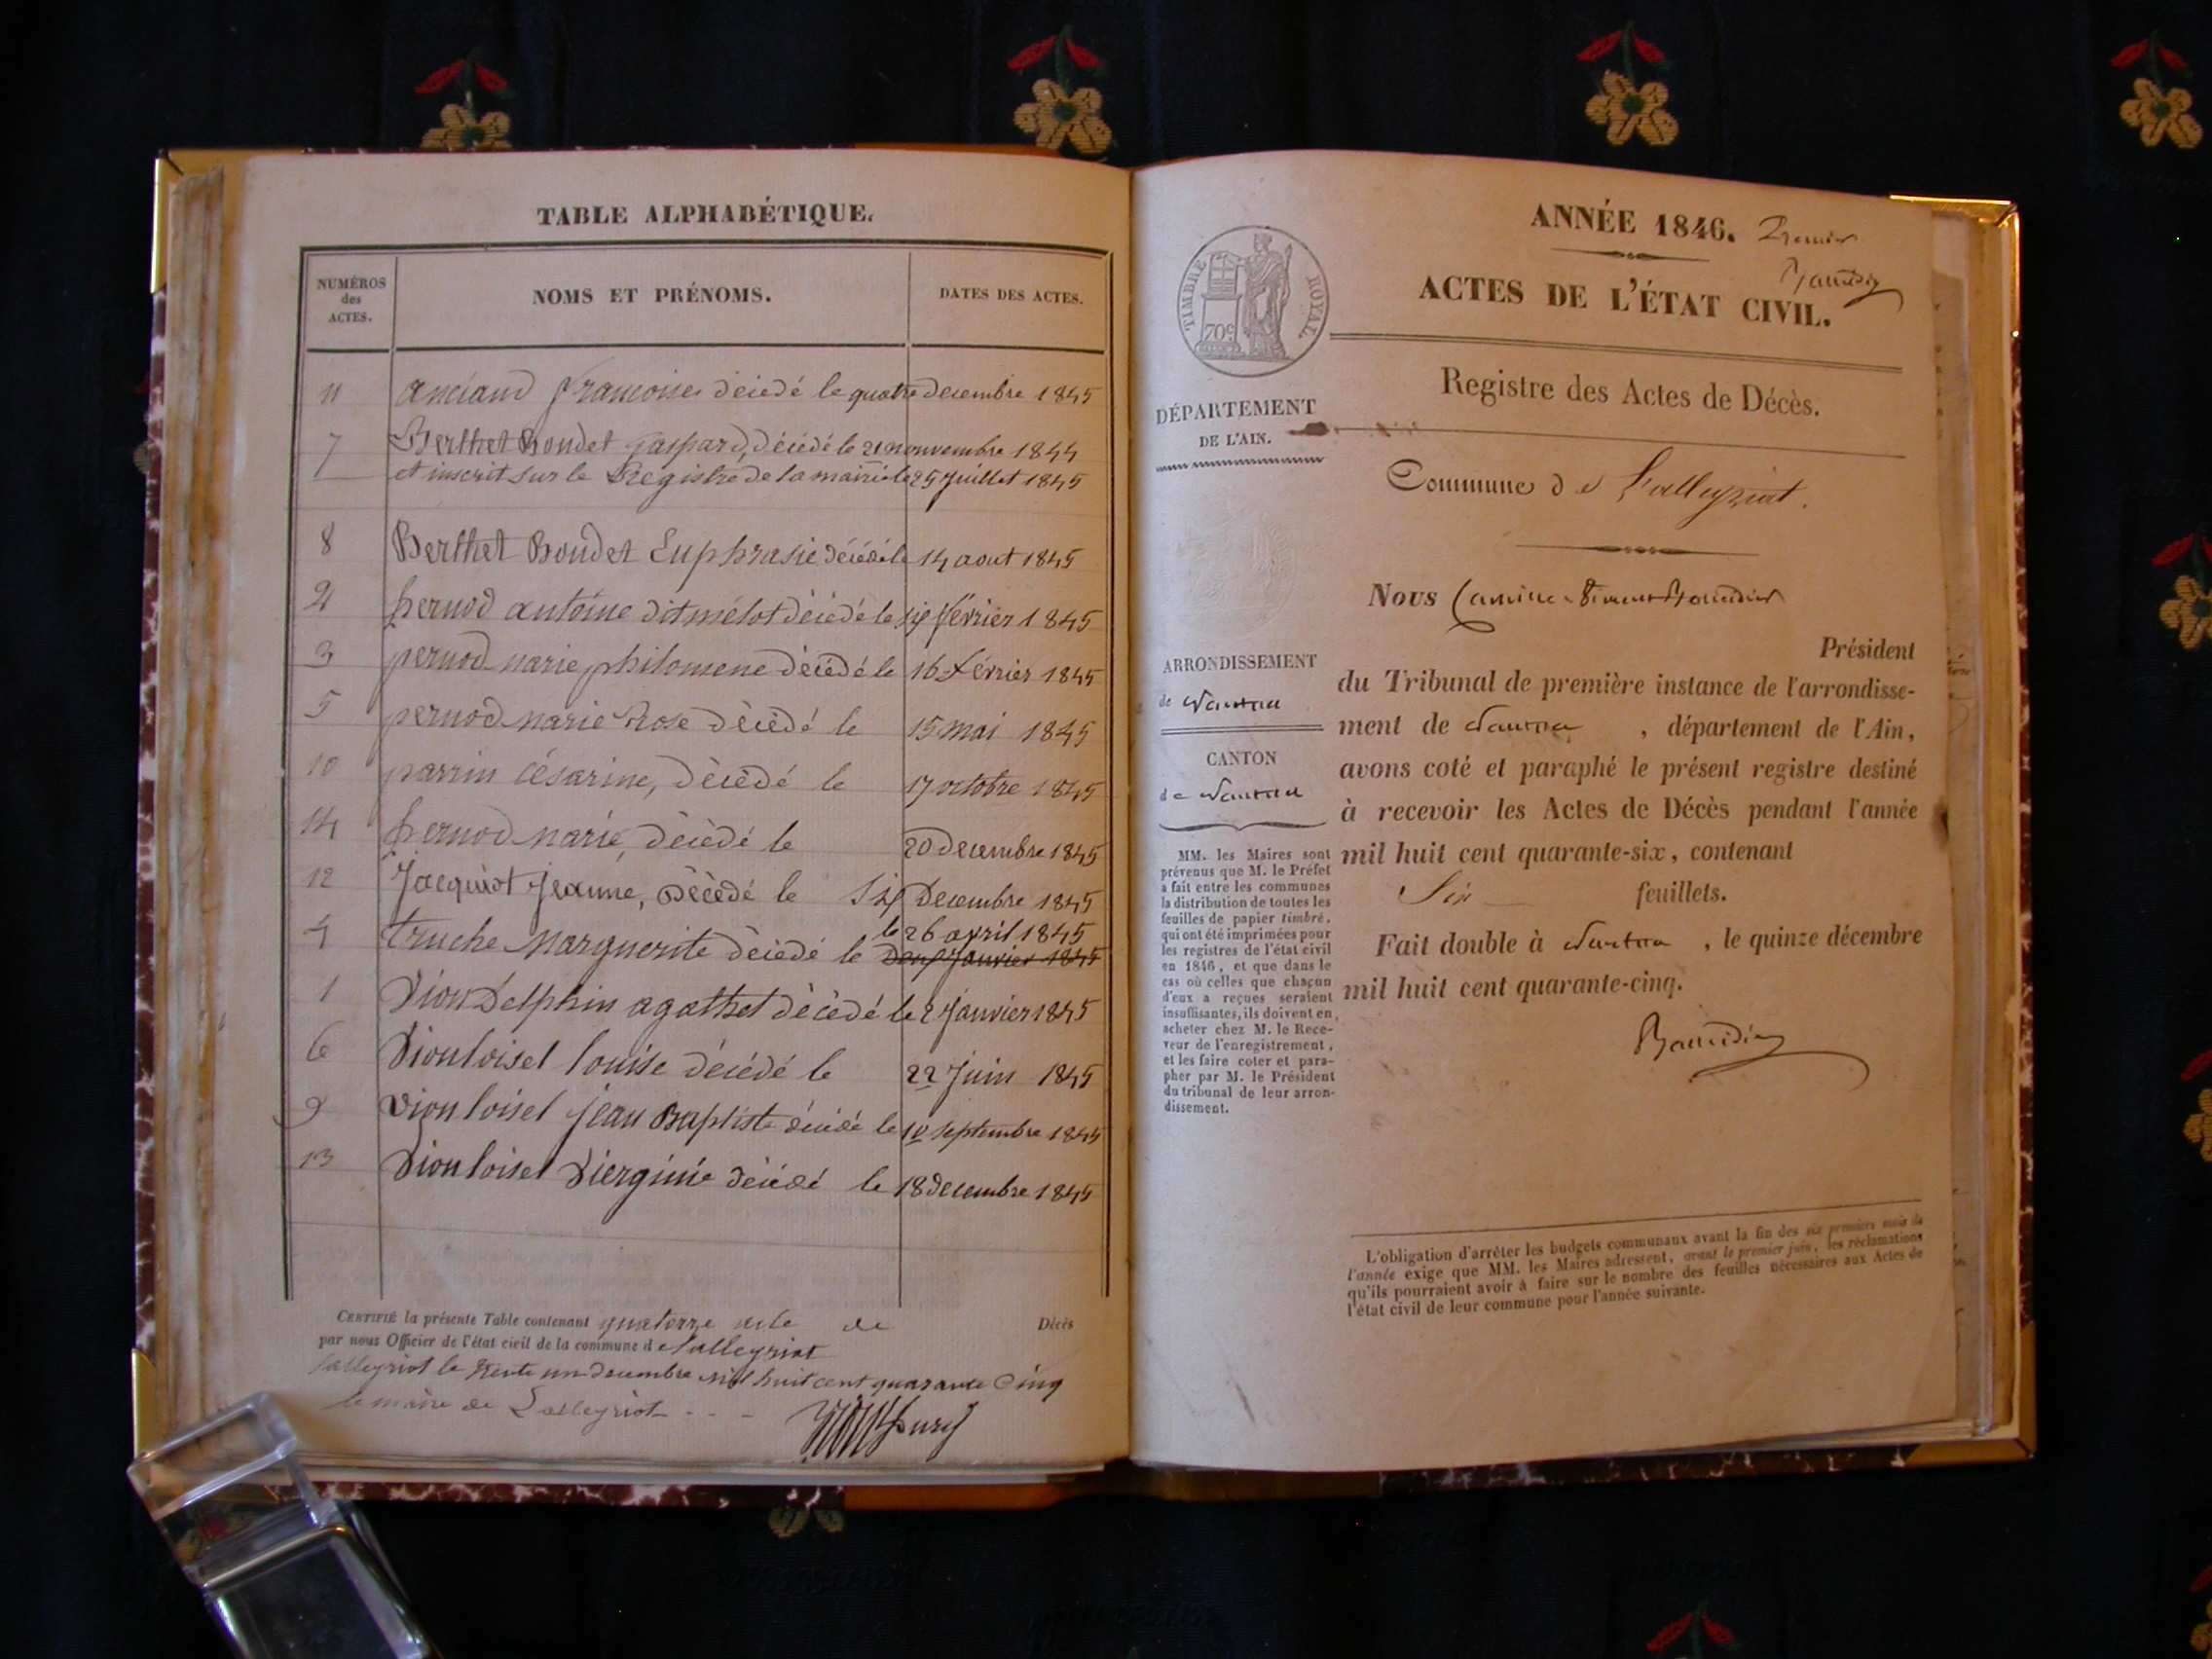 TABLE ALPHABÉTIQUE.
NUMÉROS
des
ACTES.
NOMS ET PRÉNOMS.
DATES DES ACTES.
11 anciand françoise décédé le quatre decembre 1845
7 Berthet Bondet gaspard, décédé le 21 nouvembre 1844
et inscrit sur le Registre de la mairie le 25 juillet 1845
8 Berthet Bondet Euphrasie décédé le 14 aout 1845
2 pernod antoine dit mélot décédé le six février 1845
3 pernod marie philomene décédé le 16 février 1845
5 pernod marie Rose décédé le 15 mai 1845
10 parrin césarine, décédé le 17 octobre 1845
14 pernod marie, décédé le 20 decembre 1845
12 Jacquiot jeanne, décédé le six Decembre 1845
le 26 avril 1845
4 truche marguerite décédé le Deux Janvier 1845
1 Vion Delphin agathe décédé le 2 Janvier 1845
6 Vionloisel louise décédé le 22 Juin 1845
9 vionloisel jean Baptiste décédé le 10 septembre 1845
13 Vionloisel Vierginie décédé le 18 decembre 1845
CERTIFIÉ la présente Table contenant quatorze acte de Décès
par nous Officier de l'état civil de la commune de Lalleyriat
Lalleyriat le trente un decembre mil huit cent quarante cinq
le maire de Lalleyriat
ANNÉE 1846. Premier
Baudin
ACTES DE L'ÉTAT CIVIL.
TIMBRE ROYAL
70c
Registre des Actes de Décès.
DÉPARTEMENT
DE L'AIN.
Commune de Lalleyriat.
Nous
Président
ARRONDISSEMENT
de Nantua
du Tribunal de première instance de l'arrondisse-
ment de Nantua, département de l'Ain,
CANTON
de Nantua
avons coté et paraphé le présent registre destiné
à recevoir les Actes de Décès pendant l'année
mil huit cent quarante-six, contenant
Six feuillets.
Fait double à Nantua, le quinze décembre
mil huit cent quarante-cinq.
MM. les Maires sont
prévenus que M. le Préfet
a fait entre les communes
la distribution de toutes les
feuilles de papier timbré,
qui ont été imprimées pour
les registres de l'état civil
en 1846, et que dans le
cas où celles que chacun
d'eux a reçues seraient
insuffisantes, ils doivent en
acheter chez M. le Rece-
veur de l'enregistrement,
et les faire coter et para-
pher par M. le Président
du tribunal de leur arron-
dissement.
L'obligation d'arrêter les budgets communaux avant la fin des six premiers mois de
l'année exige que MM. les Maires adressent, avant le premier juin, les réclamations
qu'ils pourraient avoir à faire sur le nombre des feuilles nécessaires aux Actes de
l'état civil de leur commune pour l'année suivante.